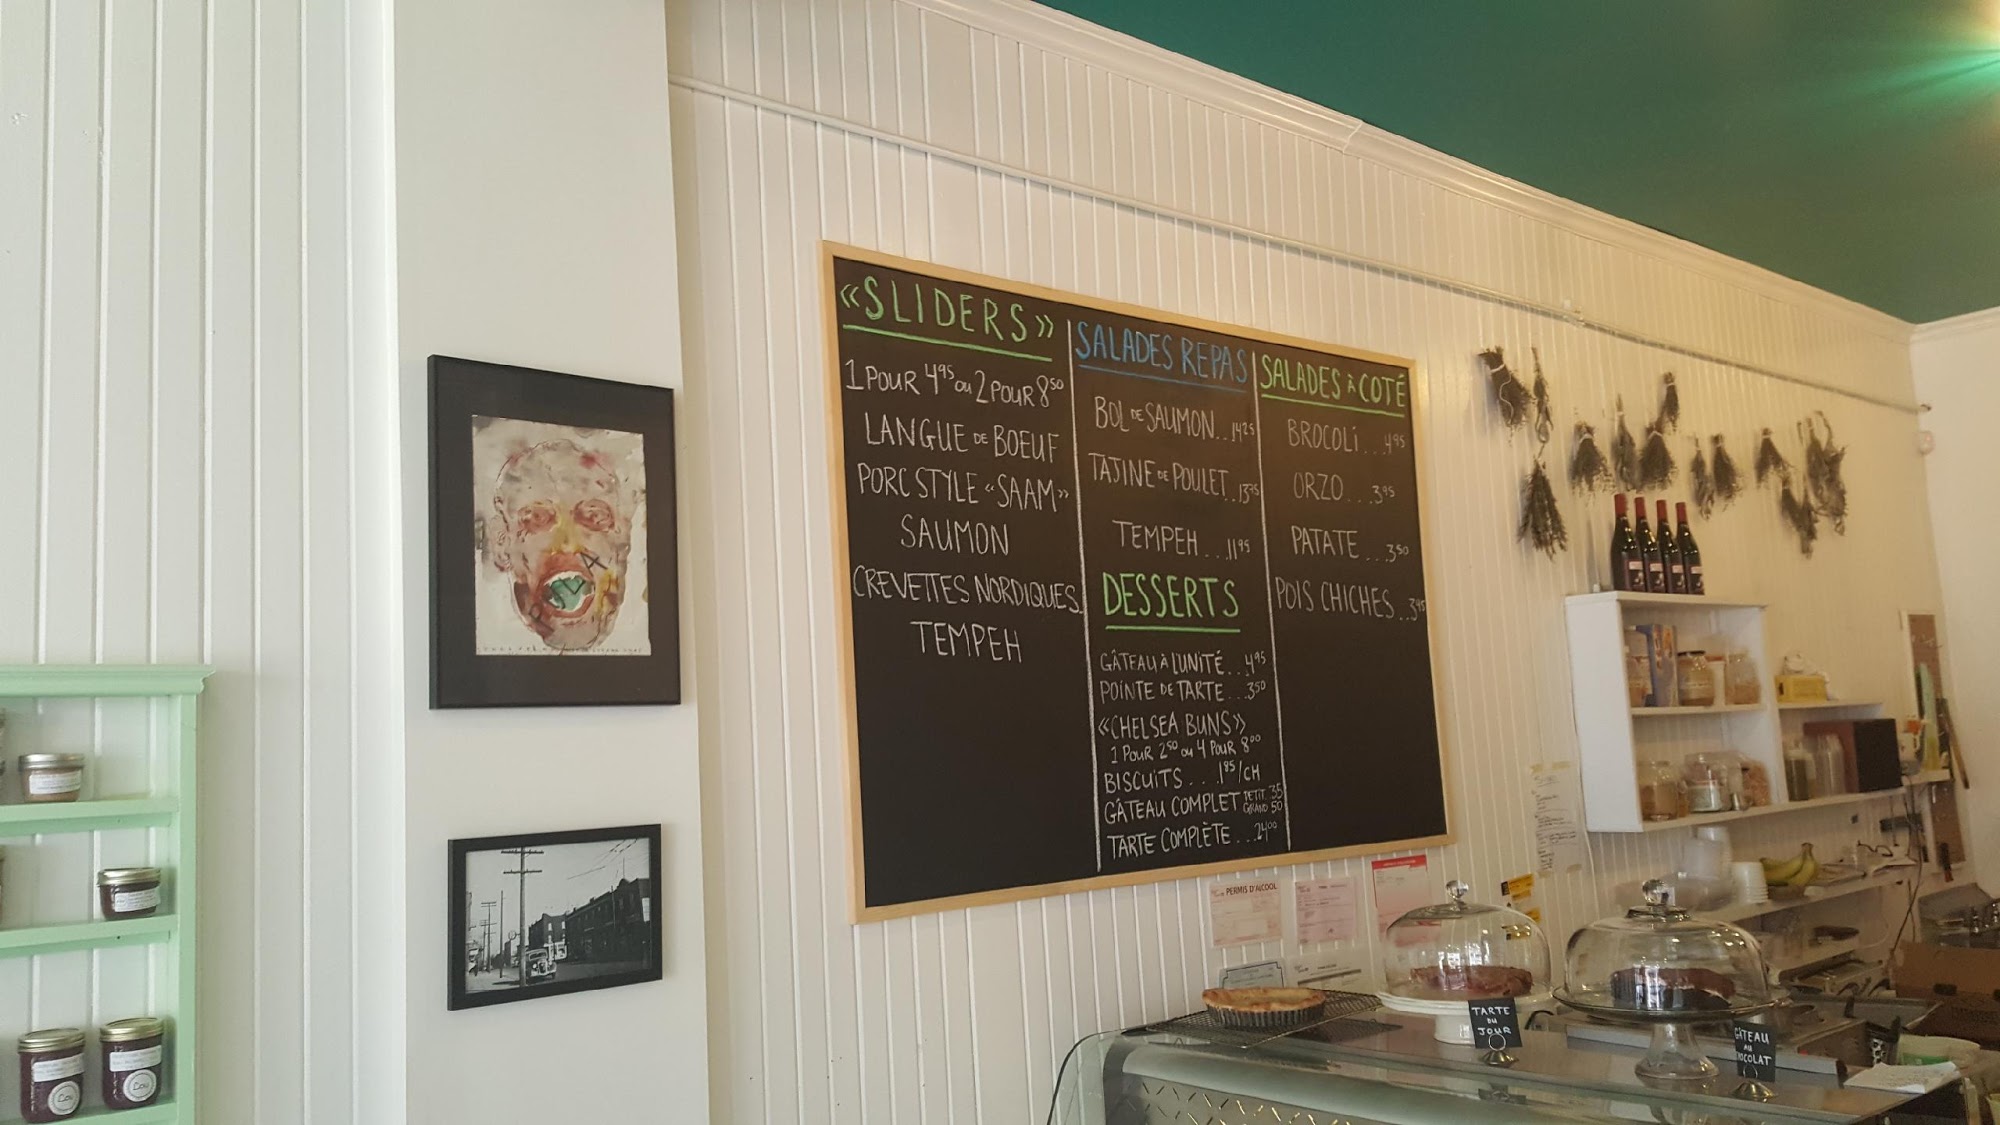 «SLIDERS»
1 POUR 4.95 OU 2 POUR 8.50
LANGUE DE BOEUF
PORC STYLE «SAAM»
SAUMON
CREVETTES NORDIQUES
TEMPEH
SALADES REPAS
BOL DE SAUMON..14.25
TAJINE DE POULET..13.75
TEMPEH...11.95
DESSERTS
GÂTEAU À L'UNITÉ...4.95
POINTE DE TARTE...3.50
«CHELSEA BUNS»
1 POUR 2.50 OU 4 POUR 8.00
BISCUITS...1.85/CH
GÂTEAU COMPLET PETIT.35
GRAND 50
TARTE COMPLÈTE...24.00
SALADES À COTÉ
BROCOLI...4.95
ORZO...3.95
PATATE...3.50
POIS CHICHES..3.95
PERMIS D'ALCOOL
TARTE
DU
JOUR
GÂTEAU
AU
CHOCOLAT
Lou
Lou